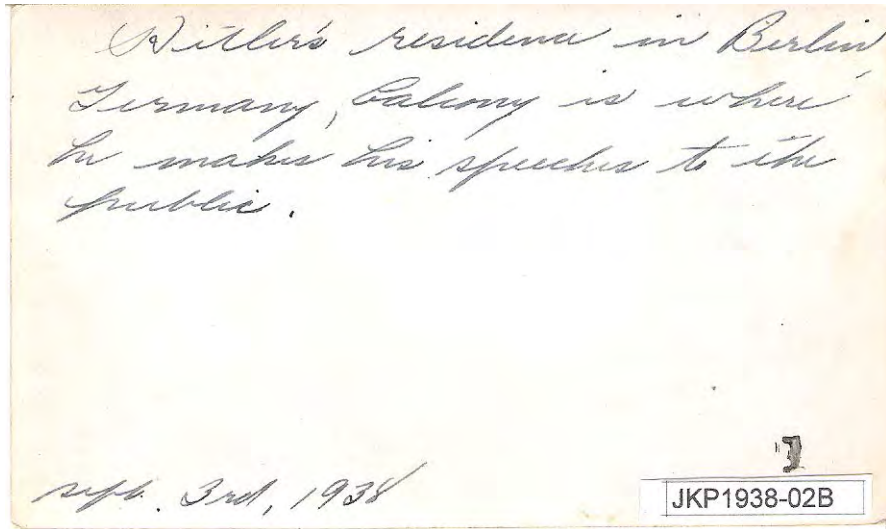 Hitler's residence in Berlin,
Germany, balcony is where
he makes his speeches to the
public.
sept. 3rd, 1938
JKP1938-02B